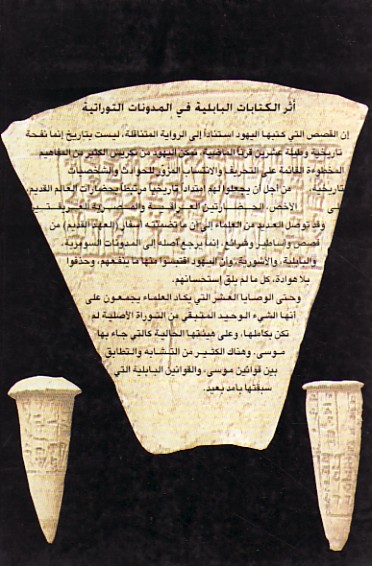 أثر الكتابات البابلية في المدونات التوراتية
إن القصص التي كتبها اليهود استناداً إلى الرواية المتناقلة، ليست بتاريخ إنما نفحة
تاريخية وطيلة عشرين قرناً الماضية، تمكن اليهود من تكريس الكثير من المفاهيم
المخطوءة القائمة على التحريف والانتساب المزور للحوادث والشخصيات
تاريخية من أجل أن يجعلوا لهم امتداداً تاريخياً مرتبطاً بحضارات العالم القديم
الأخص الحضارتين العراقية والمصرية العريقتين
وقد توصل العديد من العلماء إلى أن ما تضمنته أسفار (العهد القديم) من
قصص وأساطير وشرائع، إنما يرجع أصله إلى المدونات السومرية
والبابلية، والآشورية، وأن اليهود اقتبسوا منها ما ينفعهم، وحذفوا
بلا هوادة، كل ما لم يلق إستحسانهم.
وحتى الوصايا العشر التي يكاد العلماء يجمعون على
أنها الشيء الوحيد المتبقي من التوراة الأصلية لم
تكن بكاملها، وعلى هيئتها الحالية كالتي جاء بها
موسى، وهناك الكثير من التشابه والتطابق
بين قوانين موسى، والقوانين البابلية التي
سبقتها بأمد بعيد.